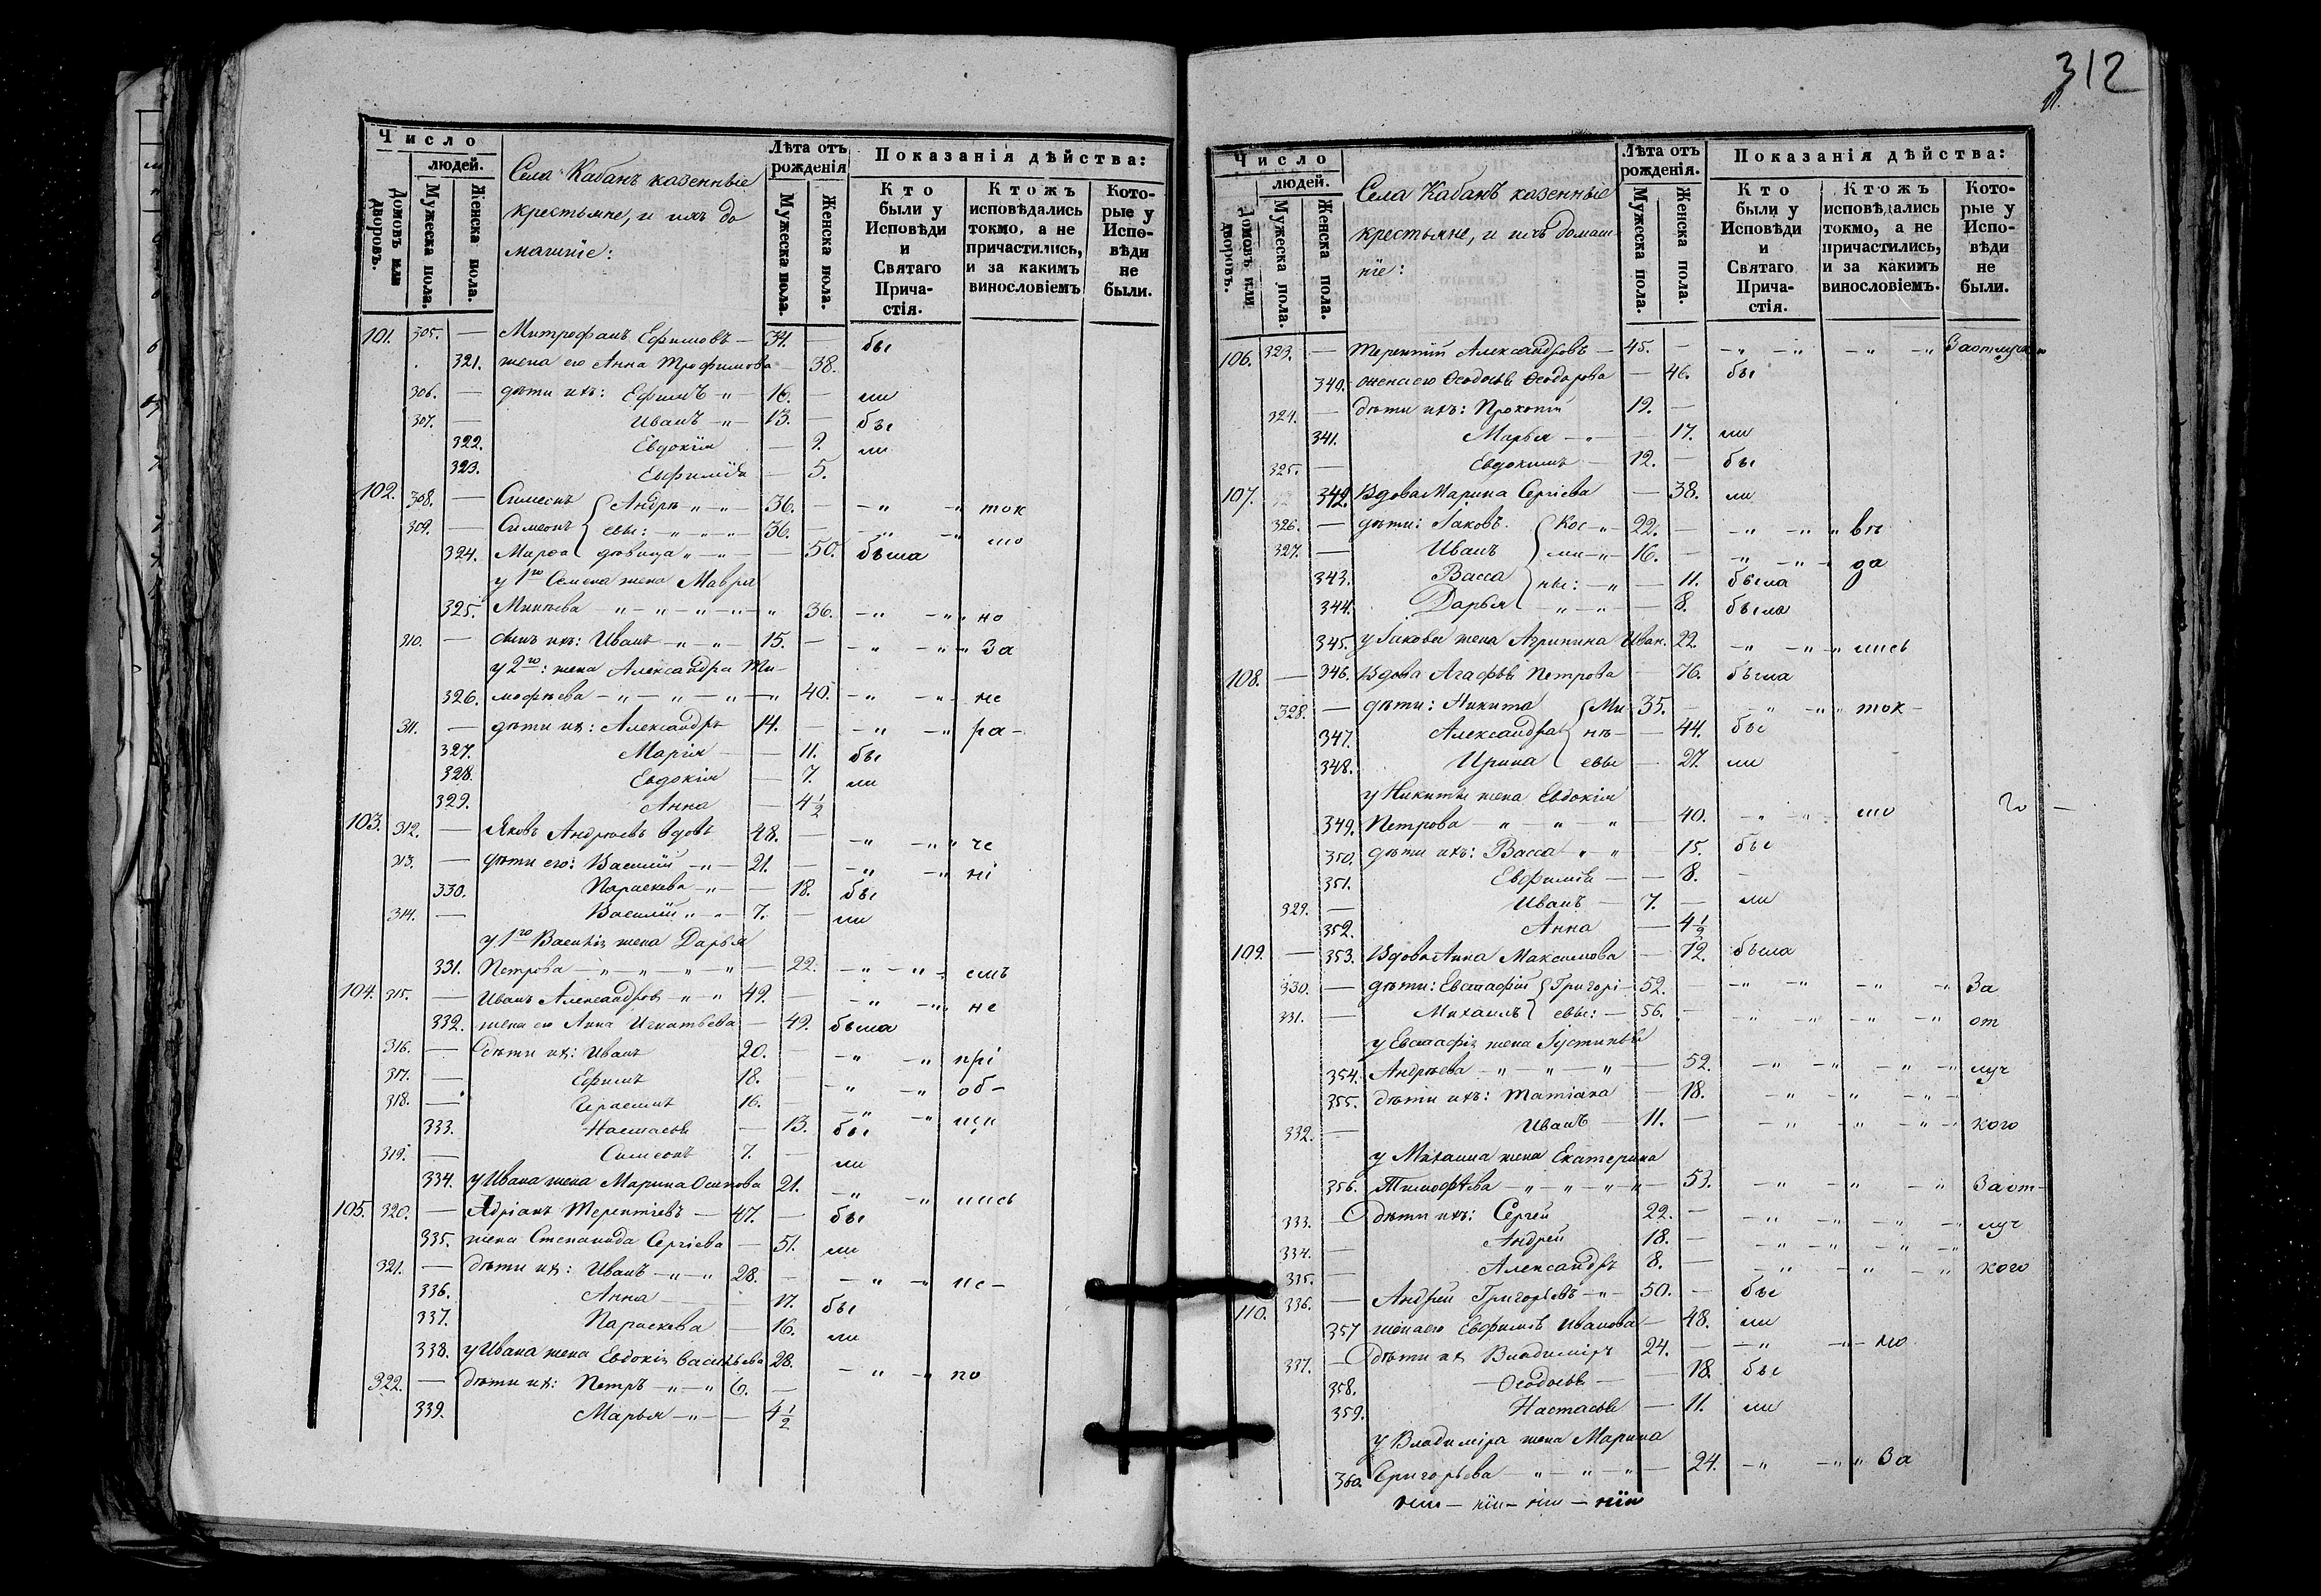 312
Число
людей.
Домовъ или дворовъ.
Мужеска пола.
Женска пола.
Села Кабанъ казенные
крестьяне, и ихъ до
машніе:
Лѣта отъ рожденія
Мужеска пола.
Женска пола.
Показанія дѣйства:
Кто были у Исповѣди и Святаго Причастія.
Ктожъ исповѣдались токмо, а не причастились, и за какимъ винословіемъ
Которые у Исповѣди не были.
101. 305. — Митрофанъ Ефимовъ — 34. — бы
321. жена его Анна Трофимова — 38.
306. — дѣти ихъ: Ефимъ — 16. — ли
307. — Иванъ — 13. — бы
322. Евдокія — 9. ли
323. Евфимія — 5.
102. 308. — Симеонъ Андрѣ 36. — ток
309. — Симеонъ евы: 36. — мо
324. Марѳа дѣвица — 50. была
у 1го Семена жена Мавра
325. Минѣева 36. но
310. — сынъ ихъ: Иванъ 15. — за
у 2го: жена Александра Ти-
326. мофѣева 40. не
311. — дѣти их: Александръ 14. — ра-
327. Марія — 11. бы
328. Евдокія — 7. ли
329. Анна — 4 1/2
103. 312. — Яковъ Андреевъ вдовъ 48. — че
313. — дѣти его: Василій 21. — ні
330. Параскева — 18. бы
314. — Василій 7. — ли
у 1го Василія жена Дарья
331. Петрова — 22. емъ
104. 315. — Иванъ Александров 49. — не
332. жена его Анна Игнатьева — 49. была
316. — дѣти их: Иванъ 20. — прі
317. — Ефимъ 18. — об-
318. — Герасимъ 16. — щи
333. Настасья — 13. бы
319. — Симеонъ 7. — ли
334. у Ивана жена Марина Осипова 21. лись
105. 320. — Адріанъ Терентіевъ — 47. — бы
335. жена Степанида Сергіева — 51. ли
321. — дѣти их: Иванъ 28. — ис-
336. Анна — 17. бы
337. Параскева — 16. ли
338. у Ивана жена Евдокія Васильева 28. по
322. — дѣти их: Петръ 6. —
339. Марья — 4 1/2
Число
людей.
Домовъ или дворовъ.
Мужеска пола.
Женска пола.
Села Кабанъ казенные
крестьяне, и ихъ домаш-
ніе:
Лѣта отъ рожденія.
Мужеска пола.
Женска пола.
Показанія дѣйства:
Кто были у Исповѣди и Святаго Причастія.
Ктожъ исповѣдались токмо, а не причастились, и за какимъ винословіемъ.
Которые у Исповѣди не были.
106. 323. — Терентій Александровъ — 45. —
340. жена его Ѳеодосья Ѳеодорова — 46. бы
324. — дѣти ихъ: Прокопій 19. —
341. Марья — 17. ли
325. — Евдокимъ 12. — бы
107. 342. Вдова Марина Сергіева — 38. ли
326. — дѣти: Іаковъ Кос 22. — въ
327. — Иванъ ми 16. — да
343. Васса ны: — 11. была
344. Дарья — 8. была
345. у Іакова жена Агрипина Иван. 22. лись
108. — 346. Вдова Агафья Петрова — 76. была
328. — дѣти: Никита Ми 35. — ток-
347. Александра нѣ — 44. бы
348. Ирина евы — 27. ли
у Никиты жена Евдокія
349. Петрова — 40. мо
350. дѣти ихъ: Васса — 15. бы
351. Евфимія — 8. —
329. — Иванъ — 7. — ли
352. Анна — 4 1/2
109. — 353. Вдова Анна Максимова — 72. была
330. — дѣти: Евстафій Григорі 52. — За
331. — Михаилъ евы: — 56. — от
у Евстафія жена Іустинья
354. Андреева — 52. луч
355. дѣти ихъ: Татіана — 18.
332. — Иванъ — 11. — кого
у Михаила жена Екатерина
356. Тимоѳѣева 53. За от-
333. — дѣти ихъ: Сергей 22. — луч
334. — Андрей 18. —
335. — Александръ 8. — кого
110. 336. — Андрей Григорьевъ 50. — бы
357 жена его Евфимія Иванова — 48. ли
337. — дѣти их Владиміръ 24. — мо
358. Ѳеодосья — 18. бы
359. Настасья — 11. ли
у Владиміра жена Марина
360. Григорьева — 24. За